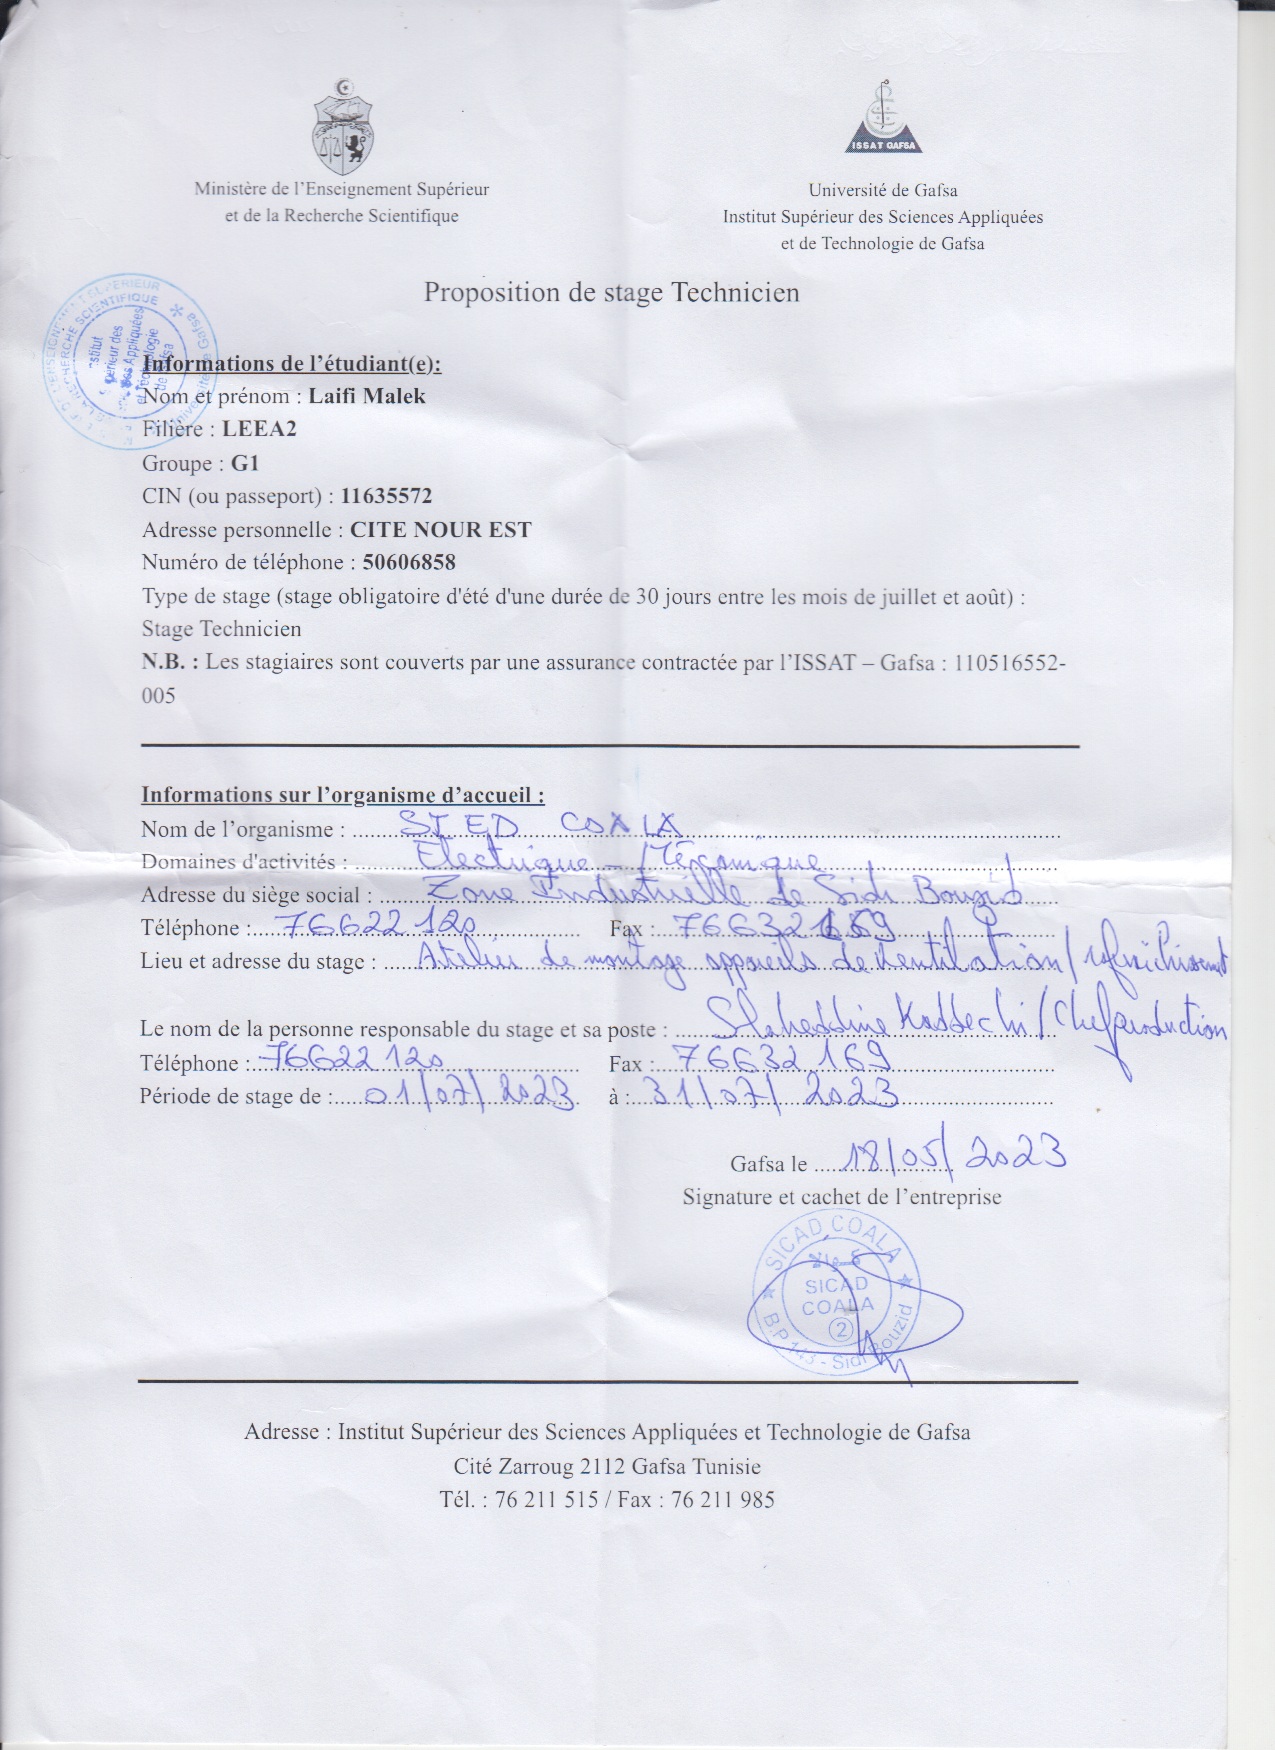 ISSAT GAFSA
Ministère de l'Enseignement Supérieur
et de la Recherche Scientifique
Université de Gafsa
Institut Supérieur des Sciences Appliquées
et de Technologie de Gafsa
Proposition de stage Technicien
Informations de l'étudiant(e):
Nom et prénom : Laifi Malek
Filière : LEEA2
Groupe : G1
CIN (ou passeport) : 11635572
Adresse personnelle : CITE NOUR EST
Numéro de téléphone : 50606858
Type de stage (stage obligatoire d'été d'une durée de 30 jours entre les mois de juillet et août) :
Stage Technicien
N.B. : Les stagiaires sont couverts par une assurance contractée par l'ISSAT – Gafsa : 110516552-
005
Informations sur l'organisme d'accueil :
Nom de l'organisme :
Domaines d'activités : Electrique - Mécanique
Adresse du siège social : Zone Industrielle de Sidi Bouzid
Téléphone : 76622120 Fax : 76632169
Lieu et adresse du stage : Atelier de montage appareils de ventilation / rafraichissement
Le nom de la personne responsable du stage et sa poste : Slaheddine / Chef production
Téléphone : 76622120 Fax : 76632169
Période de stage de : 01/07/2023 à : 31/07/2023
Gafsa le 18/05/2023
Signature et cachet de l'entreprise
SICAD COALA
SICAD
COALA
2
Sidi Bouzid
Adresse : Institut Supérieur des Sciences Appliquées et Technologie de Gafsa
Cité Zarroug 2112 Gafsa Tunisie
Tél. : 76 211 515 / Fax : 76 211 985